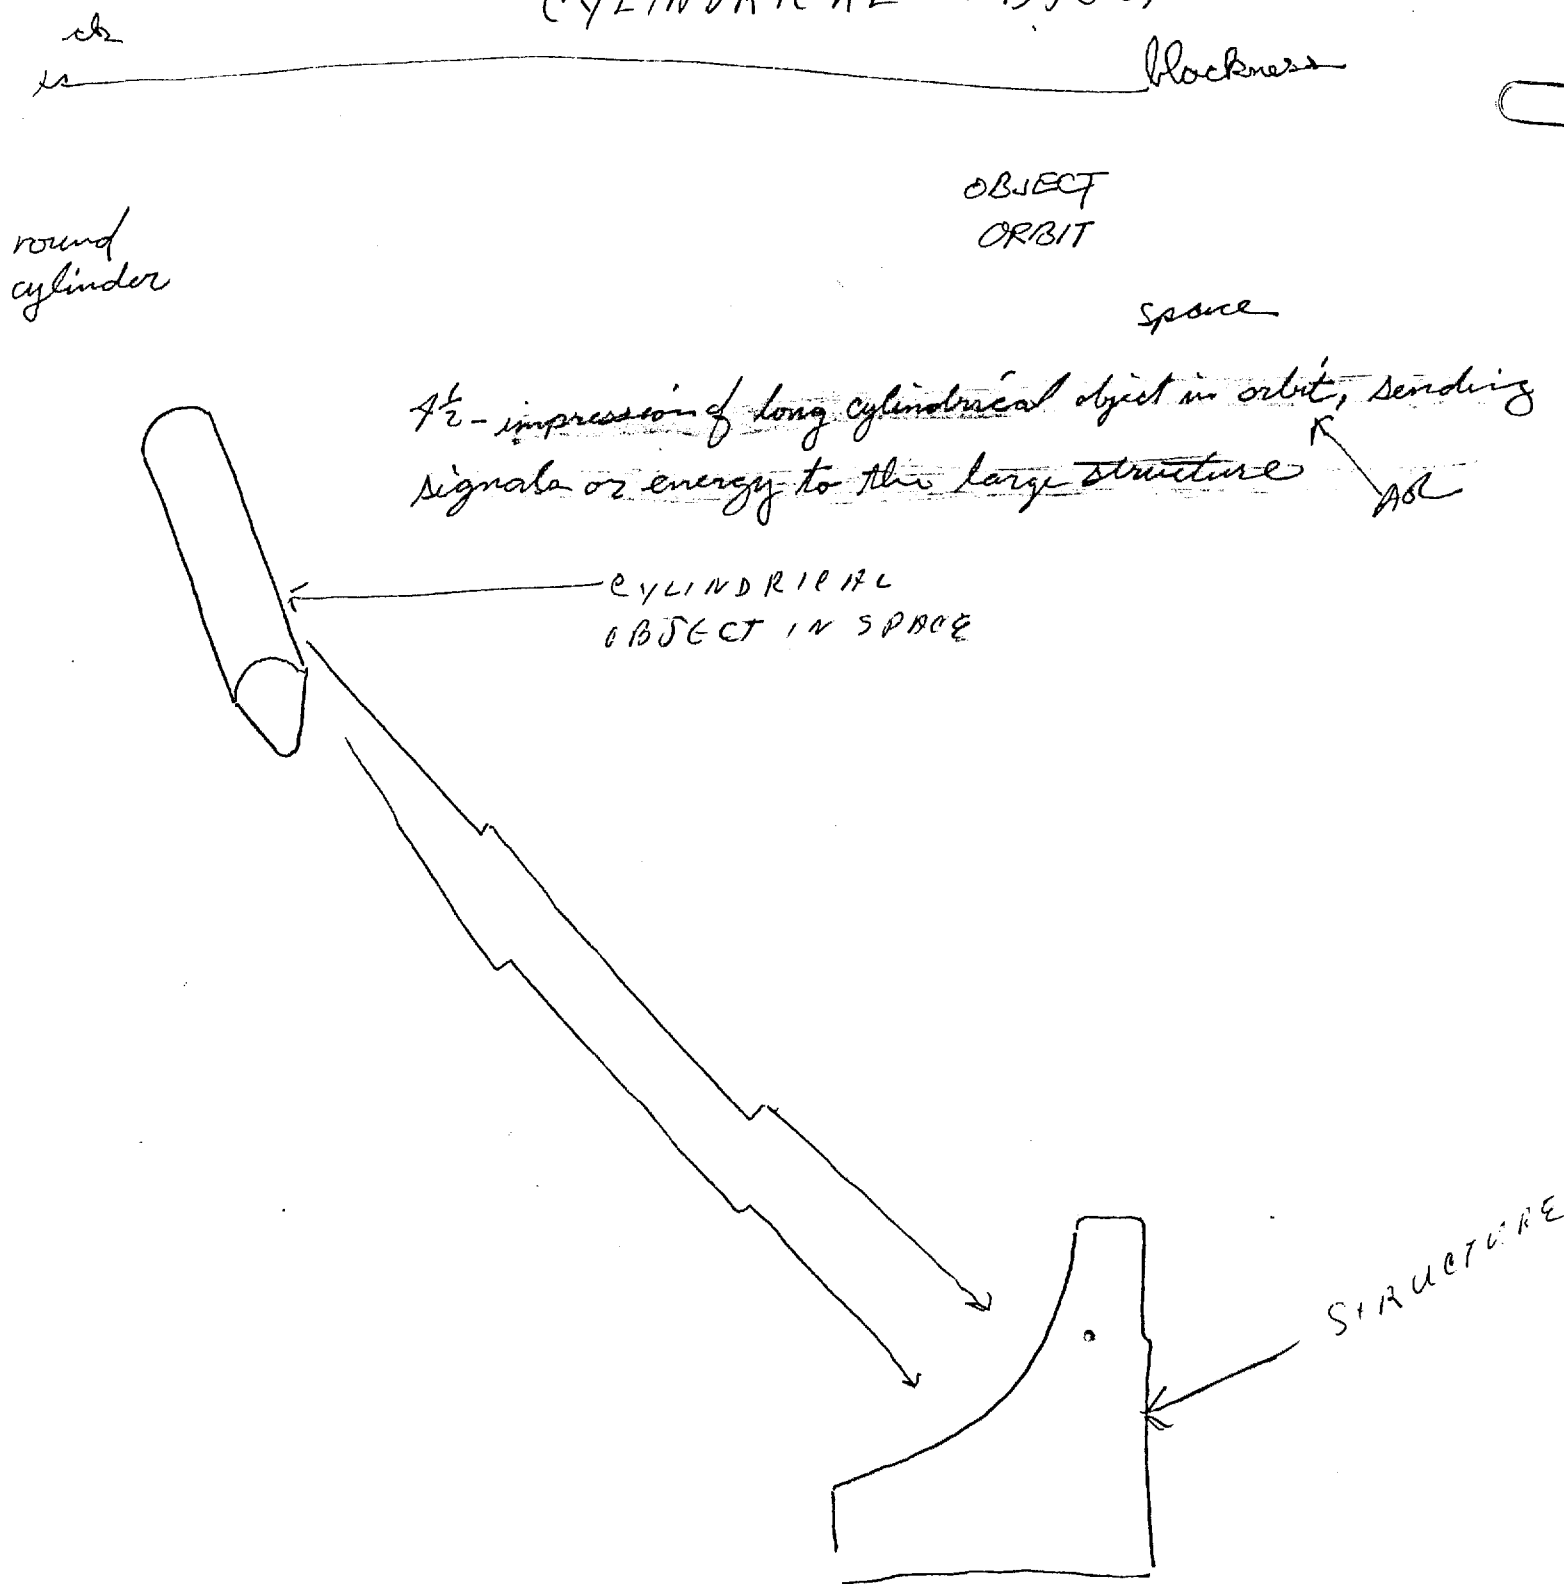 CYLINDRICAL OBJECT
blackness
OBJECT
ORBIT
round
cylinder
space
4½ - impression of long cylindrical object in orbit, sending
signals or energy to the large structure
AOL
CYLINDRICAL
OBJECT IN SPACE
STRUCTURE